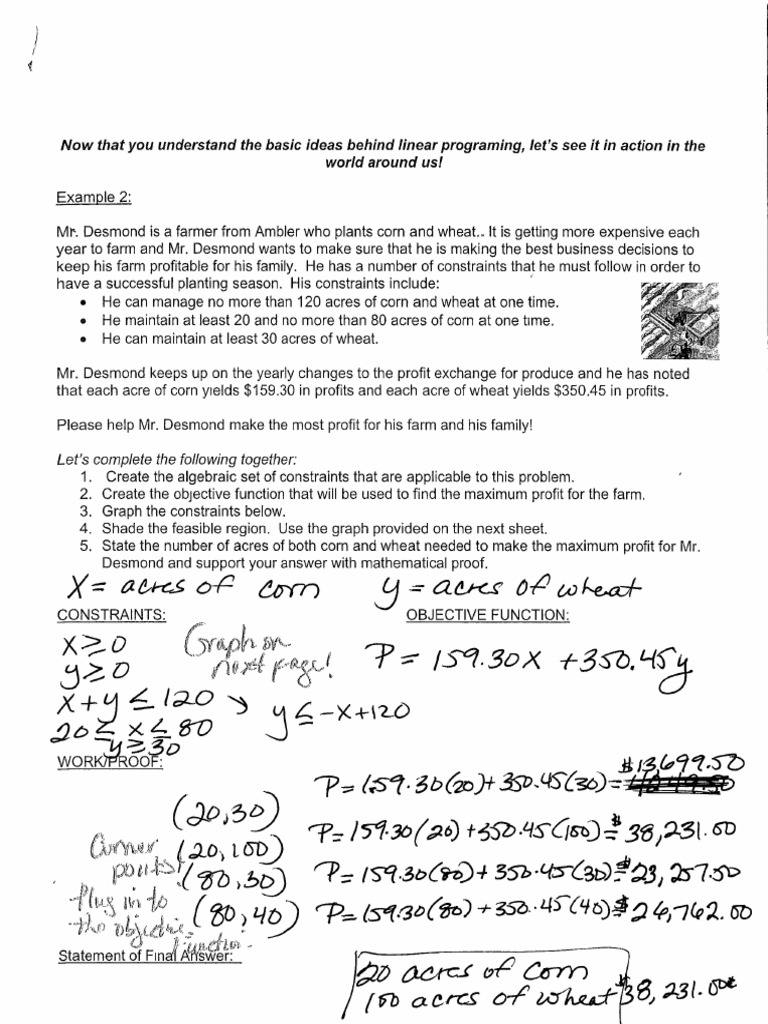 Now that you understand the basic ideas behind linear programing, let's see it in action in the
world around us!
Example 2:
Mr. Desmond is a farmer from Ambler who plants corn and wheat.. It is getting more expensive each
year to farm and Mr. Desmond wants to make sure that he is making the best business decisions to
keep his farm profitable for his family. He has a number of constraints that he must follow in order to
have a successful planting season. His constraints include:
• He can manage no more than 120 acres of corn and wheat at one time.
• He maintain at least 20 and no more than 80 acres of corn at one time.
• He can maintain at least 30 acres of wheat.
Mr. Desmond keeps up on the yearly changes to the profit exchange for produce and he has noted
that each acre of corn yields $159.30 in profits and each acre of wheat yields $350.45 in profits.
Please help Mr. Desmond make the most profit for his farm and his family!
Let's complete the following together:
1. Create the algebraic set of constraints that are applicable to this problem.
2. Create the objective function that will be used to find the maximum profit for the farm.
3. Graph the constraints below.
4. Shade the feasible region. Use the graph provided on the next sheet.
5. State the number of acres of both corn and wheat needed to make the maximum profit for Mr.
Desmond and support your answer with mathematical proof.
X = acres of corn y = acres of wheat
CONSTRAINTS: OBJECTIVE FUNCTION:
x ≥ 0 Graph on
y ≥ 0 next page! P = 159.30x + 350.45y
x + y ≤ 120 → y ≤ -x + 120
20 ≤ x ≤ 80
y ≥ 30
WORK/PROOF:
(20,30) P = 159.30(20) + 350.45(30) = $13,699.50
Corner (20,100) P = 159.30(20) + 350.45(100) = $38,231.00
points! (80,30) P = 159.30(80) + 350.45(30) = $23,257.50
Plug in to (80,40) P = 159.30(80) + 350.45(40) = $26,762.00
the objective
function.
Statement of Final Answer:
20 acres of corn
100 acres of wheat $38,231.00